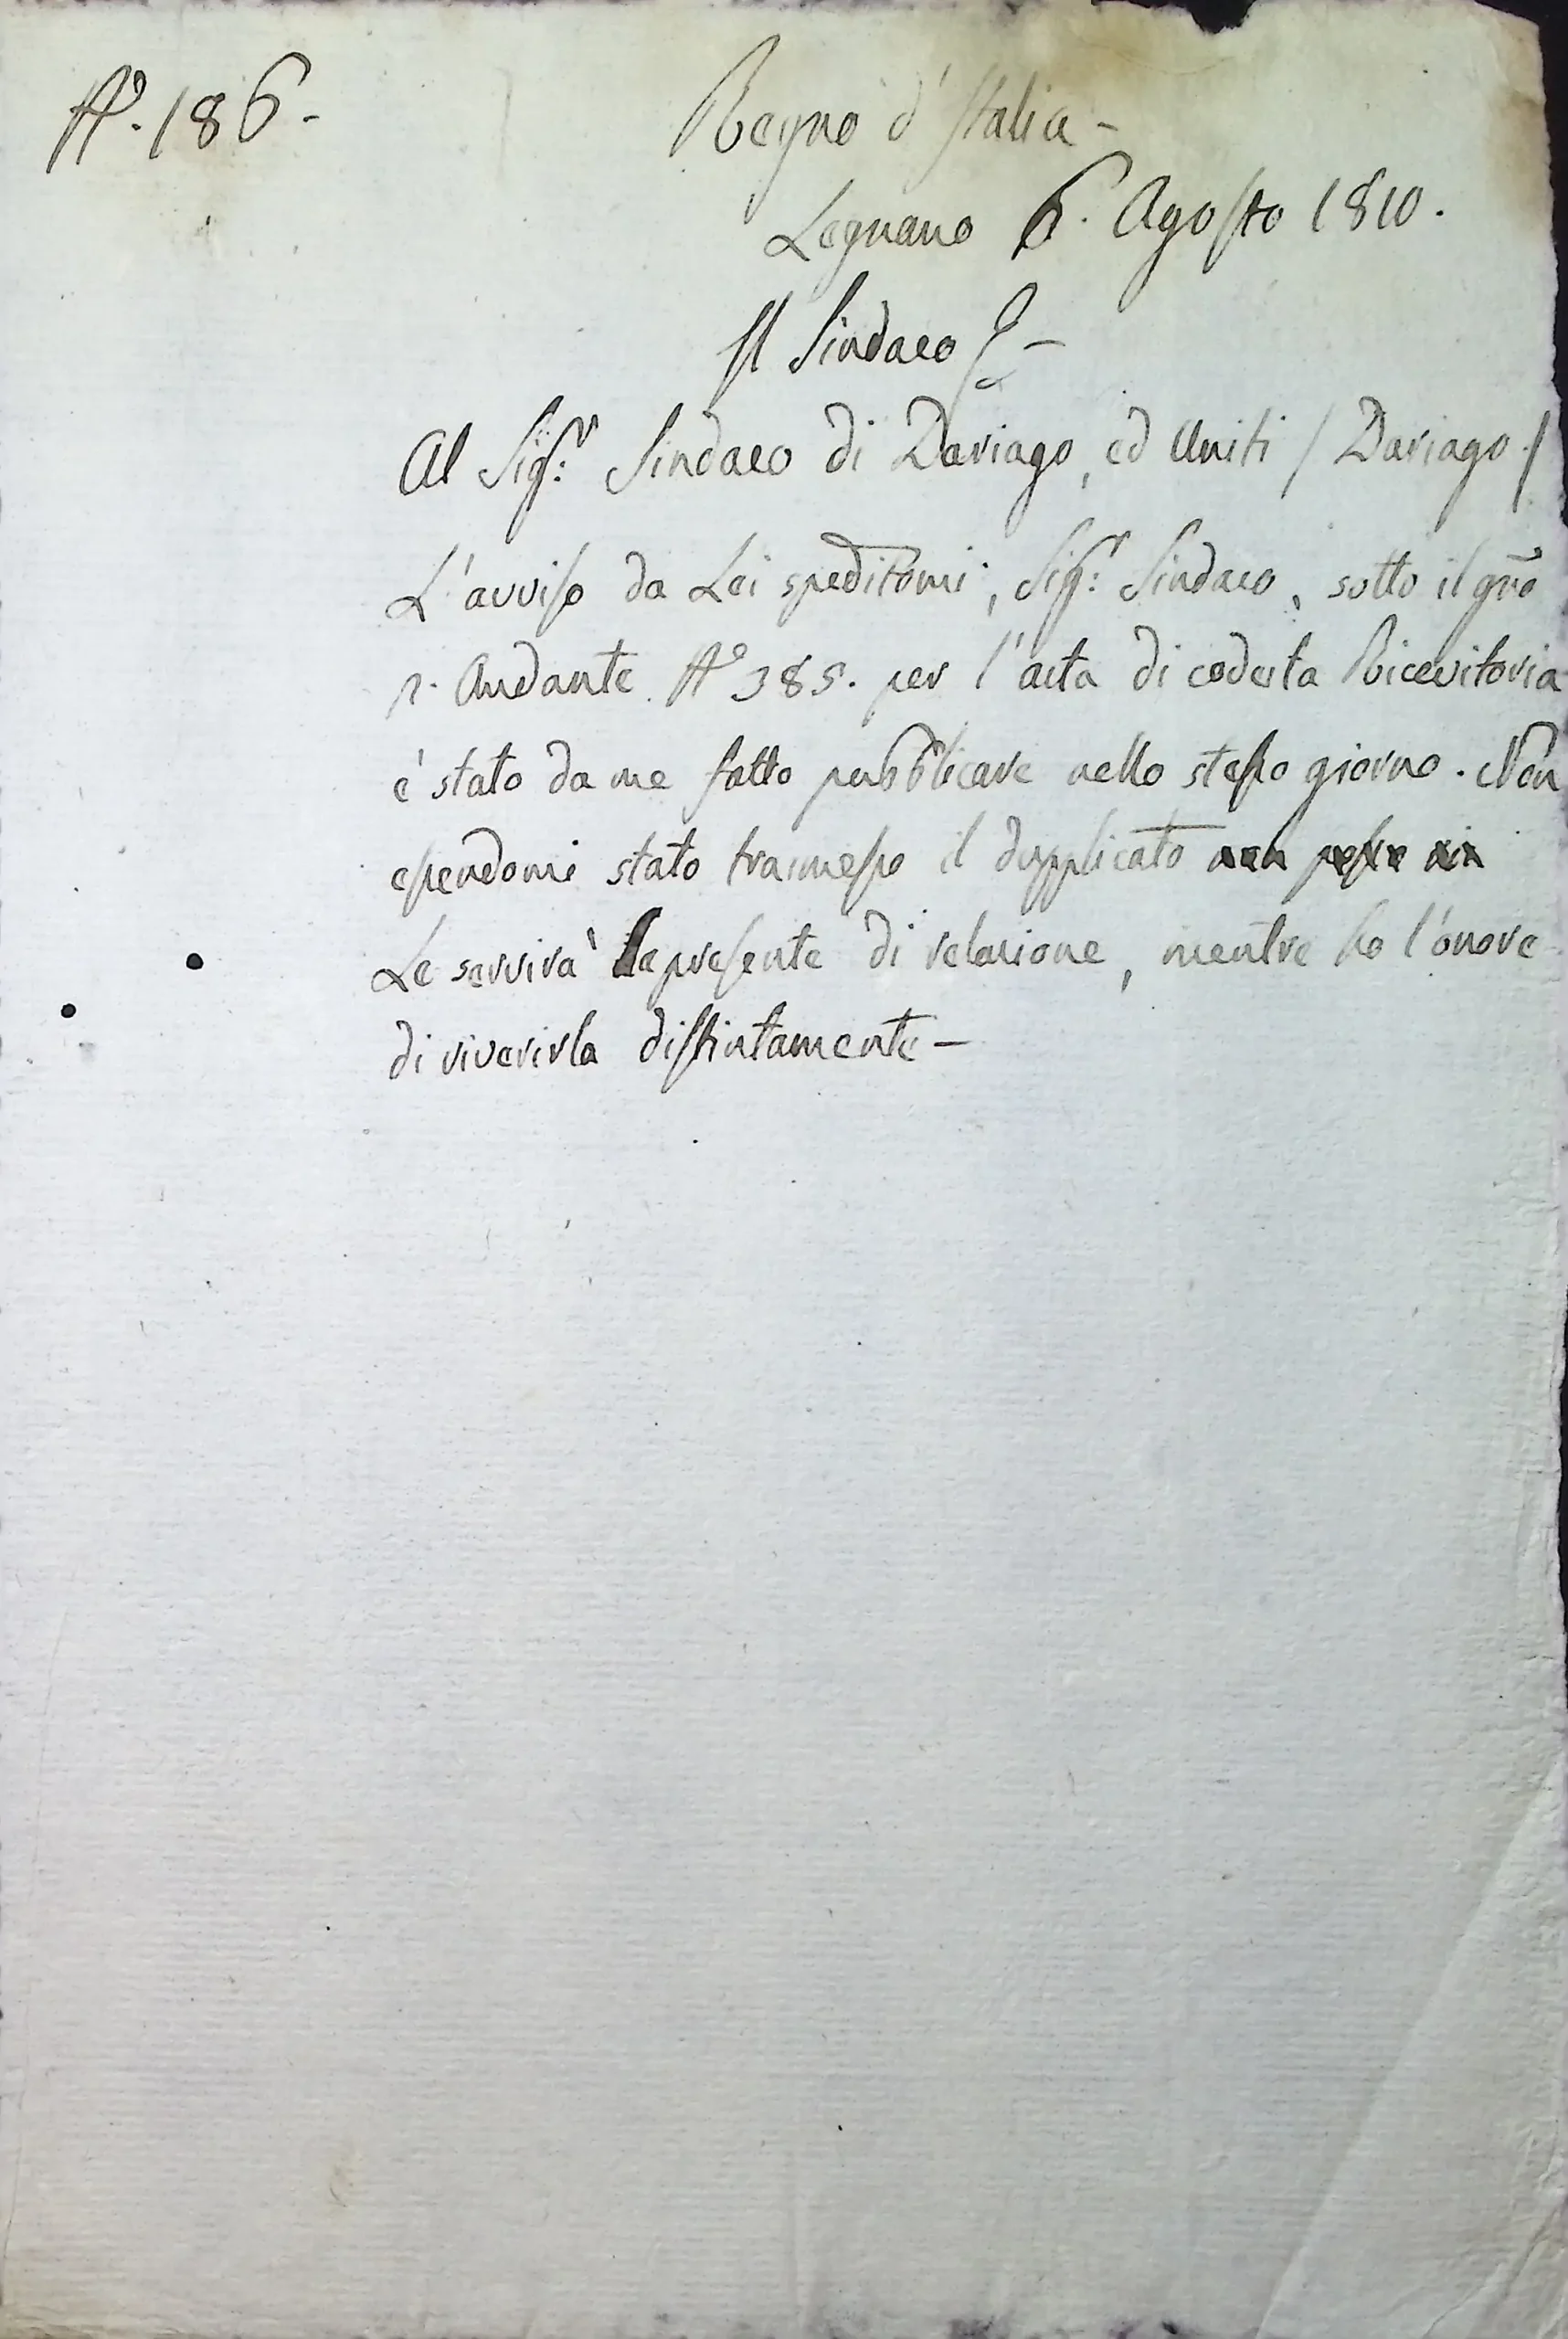 N.° 186.-
Regno d'Italia -
Legnano 6. Agosto 1810.
Il Sindaco
Al Sig.r Sindaco di Dariago, ed Uniti / Dariago /
L'avviso da Lei speditomi, Sig.r Sindaco, sotto il gno
1. Andante N.° 385. per l'asta di codesta Ricevitoria
è stato da me fatto pubblicare nello stesso giorno. Non
essendomi stato trasmesso il dupplicato
Le servirà la presente di relazione, mentre ho l'onore
di riverirla distintamente -